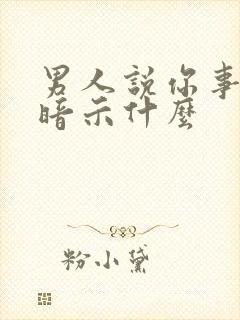 男人說你事
暗示什麼
粉小黛